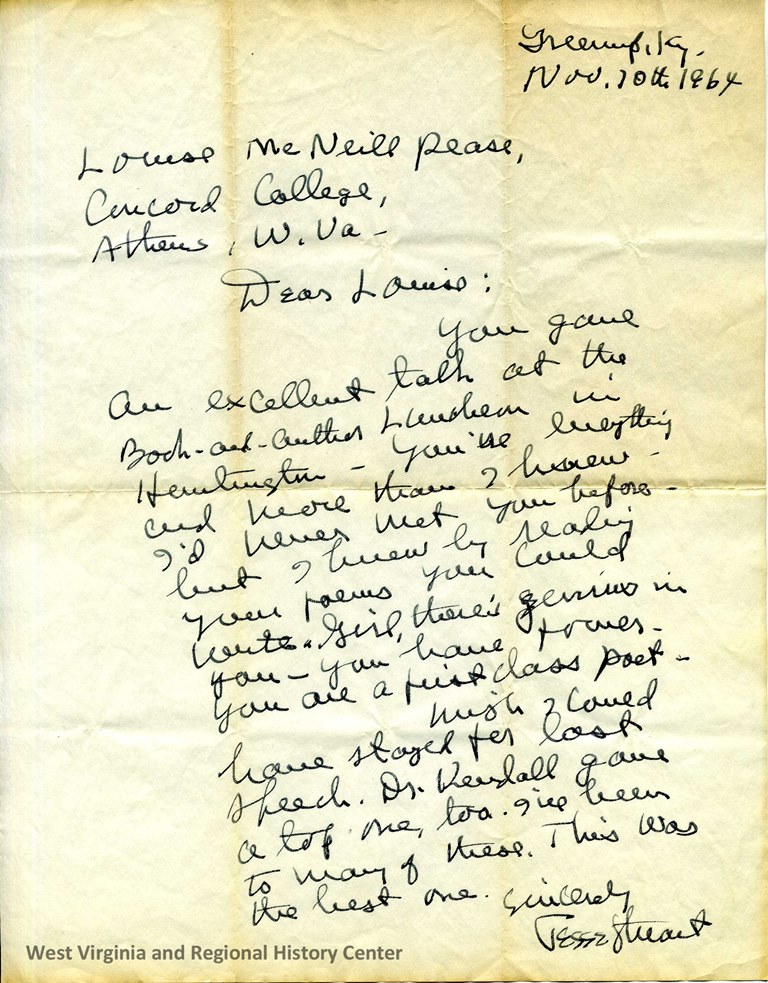 Greenup, Ky.
Nov. 10th 1964
Louise McNeill Pease,
Concord College,
Athens, W. Va -
Dear Louise:
You gave
an excellent talk at the
Book-and-Author Luncheon in
Huntington - You're everything
and more than I knew -
I'd never met you before -
but I knew by reading
your poems you could
write. Girl, there's genius in
you - you have powers -
You are a first class poet -
Wish I could
have stayed for last
speech. Dr. Kendall gave
a top one, too. I've been
to many of these. This was
the best one. Sincerely
Jesse Stuart
West Virginia and Regional History Center